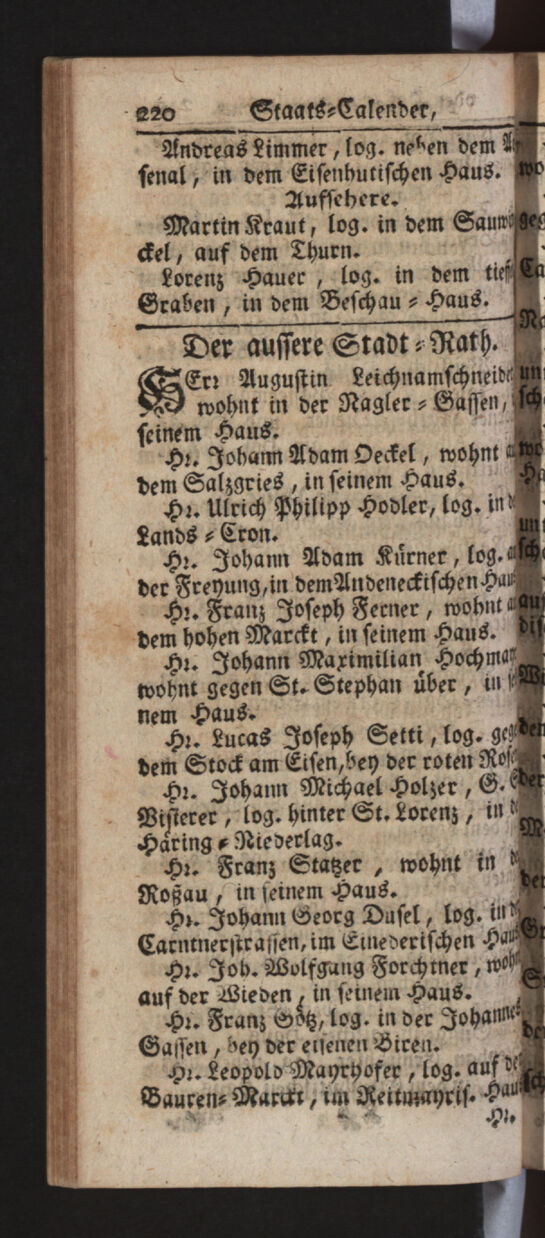 220 Staats-Calender,
Andreas Limmer, log. neben dem
senal, in dem Eisenhutischen Haus.
Aufsehere.
Martin Kraut, log. in dem Sauw
ckel, auf dem Thurn.
Lorenz Hauer, log. in dem tief
Graben, in dem Beschau-Haus.
Der aussere Stadt-Rath.
HErr Augustin Leichnamschneide
wohnt in der Nagler-Gassen,
seinem Haus.
Hr. Johann Adam Oeckel, wohnt a
dem Salzgries, in seinem Haus.
Hr. Ulrich Philipp Hodler, log. in d
Lands-Cron.
Hr. Johann Adam Kürner, log. a
der Freyung, in dem Andeneckischen Hau
Hr. Franz Joseph Ferner, wohnt a
dem hohen Marckt, in seinem Haus.
Hr. Johann Maximilian Hochman
wohnt gegen St. Stephan über, in s
nem Haus.
Hr. Lucas Joseph Setti, log. geg
dem Stock am Eisen, bey der roten Ros
Hr. Johann Michael Holzer, G.
Visterer, log. hinter St. Lorenz, in d
Häring-Niederlag.
Hr. Franz Statzer, wohnt in d
Roßau, in seinem Haus.
Hr. Johann Georg Dusel, log. in d
Carntnerstrassen, im Einederischen Hau
Hr. Joh. Wolfgang Forchtner, woh
auf der Wieden, in seinem Haus.
Hr. Franz Götz, log. in der Johannes
Gassen, bey der eisenen Biren.
Hr. Leopold Mayrhofer, log. auf de
Bauren-Marckt, im Reitmayris. Hau
Hr.